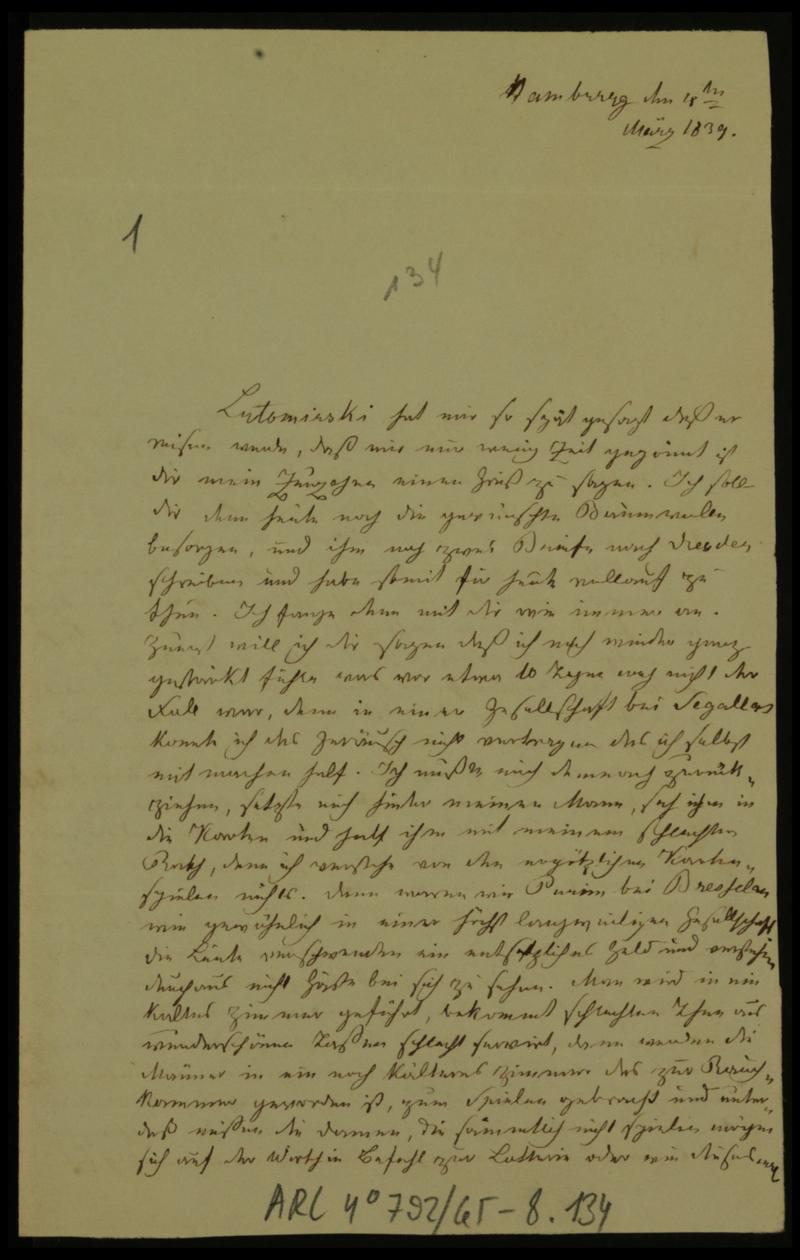 Hamburg den 15ten
März 1839.
1
134
Lutomirski hat mir so spät gesagt daß er
reisen werde, daß mir nur wenig Zeit gegönnt ist
dir mein einen Gruß zu sagen. Ich soll
dir denn heute noch die gewünschte Baumwolle
besorgen, und ihm noch zwei Briefe nach Dresden
schreiben und habe somit für heute vollauf zu
thun. Ich fange denn mit dir wie immer an.
Zuerst will ich dir sagen daß ich mich wieder ganz
gestärkt fühle was vor etwa 10 Tagen noch nicht der
Fall war, denn in einer Gesellschaft bei Segallas
konnte ich das Geräusch nicht vertragen das ich selbst
mit machen half. Ich mußte mich demnach zurück-
ziehen, setzte mich hinter meinen Mann, sah ihm in
die Karten und half ihm mit meinem schlechten
Rath, denn ich verstehe von den ergötzlichen Karten-
spielen nichts. Dann waren wir Purim bei Bresselau
wie gewöhnlich in einer höchst langweiligen Gesellschaft
die Leute verschwenden ein entsetzliches Geld und verstehen
durchaus nicht Gäste bei sich zu sehen. Man wird in ein
kaltes Zimmer geführt, bekommt schlechten Thee aus
wunderschönen Taßen schlecht servirt, dann werden die
Männer in ein noch kälteres Zimmer das zur Rauch-
kammer geworden ist, zum Spielen gebracht und unter-
deß müßen die Damen, die sämmtlich nicht spielen mögen
sich auf der Wirthin Befehl zur Lotterie oder
ARC 4° 792/G5-8.134